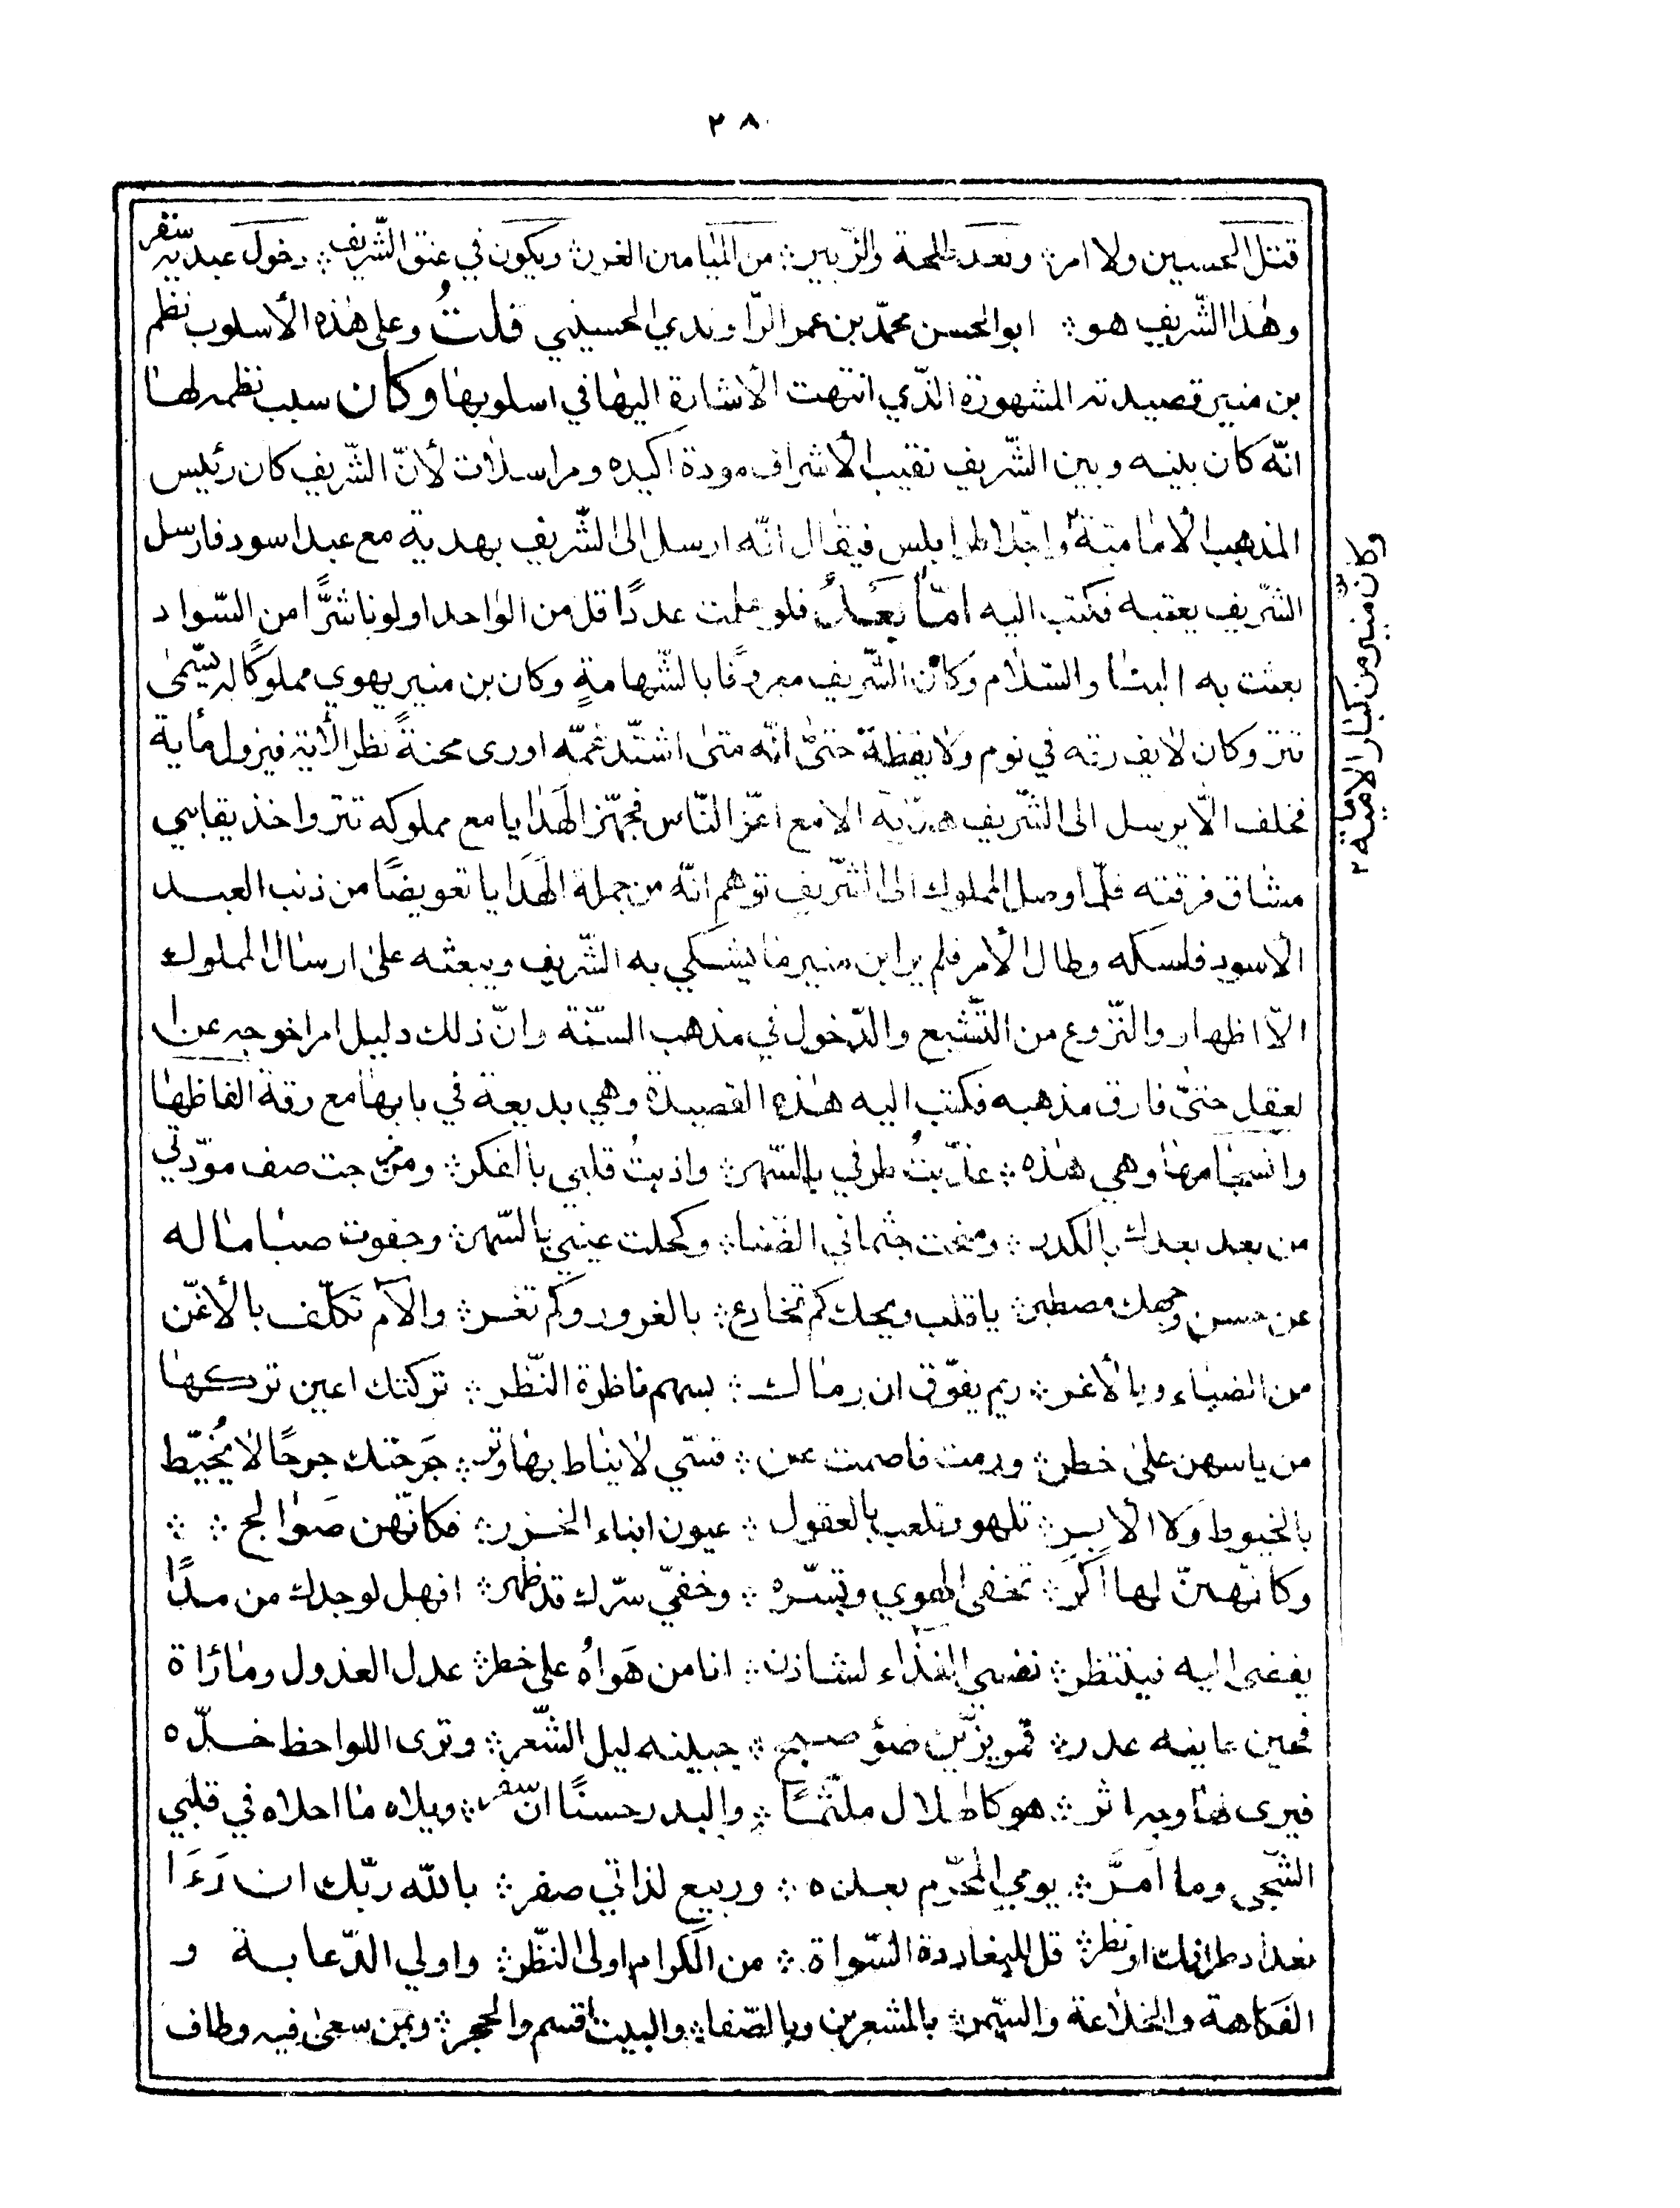 ٣٨٠
قتل الحسين ولا امر ؞ ونعد طلحة والزّبير ؞ من الميامين الغرر ؞ ويكون في عنق الشّريف ؞ دخول عبديه سقر
وهٰذا الشّريف هو ؞ ابوالحسن محمّد بن عمر الرّاوندي الحسيني قلتُ وعلى هٰذه الأسلوب نظم
بن منير قصيدته المشهورة الذّي انتهت الأشارة اليها في اسلوبها وكان سبب نظمه لها
انّه كان بينه وبين الشّريف نقيب الأشراف مودة اكيده ومراسلات لأنّ الشّريف كان رئيس
المذهب الأمامية واجلا طرابلس فيقال انّه ارسل الى الشّريف بهدية مع عبد اسود فارسل
الشّريف يعتبه فكتب اليه امّا بعدُ فلو علمت عددًا قل من الواحد او لونا شرًّا من السّواد
بعثت به الينا والسّلام وكان الشّريف معروفًا بالشّهامةٍ وكان بن منير يهوي مملوكًا له يسّمى
تتر وكان لا يفارقه في نوم ولا يقظة حتىّ انّه متى اشتّد غمّه اورى محنةً نظر الأيه فيزول مأية
فحلف الّا يرسل الى الشّريف هديّة الا مع اعزّ النّاس فجهّز الهَدايا مع مملوكه تتر واخذ يقاسي
مشاق فرقته فلمّا وصل المملوك الى الشّريف توهم انّه من جملة الهَدَايا تعويضًا من ذنب العبد
الأسود فامسكه وطال الأمر فلم ير ابن منير ما يشكي به الشّريف ويبعثه على ارسال المملوك
الاّ اظهار والنّزوع من التّشّيع والدّخول في مذهب السّنّة وانّ ذلك دليل امر اخوجه عن ا
لعقل حتىّ فارق مذهبه فكتب اليه هٰذه القصيدة وهي بديعة في بابها مع رقة الفاظها
وانسجامها وهي هٰذه ؞ عذّبتُ طرفي بالسّهر ؞ واذبتُ قلبي بالفكر ؞ ومزجت صف مودّتي
من بعد بعدك بالكدر ؞ ومنحت جثماني الضنا ؞ وكحلت عيني بالسّهر ؞ وجفوت صبا ماله
عن حسن وجهك مصطبر ؞ يا قلب ويحك كم تخادع ؞ بالغرور وكم تغر ؞ والآم تكلّف بالأغّن
من الضباء وبالأغر ؞ ريم يفوّق ان رماك ؞ بسهم ناظرة النّظر ؞ تركتك اعين تركها
من باسهن على خطر ؞ ورمت فاصمت عن ؞ قسّي لا يناط بها وتر ؞ جَرحتك جرحًا لا يُخيّط
بالخيوط ولا الأبر ؞ تلهو وتلعب بالعقول ؞ عيون ابناء الخزر ؞ فكانّهن صَوٰالج ؞ ؞
وكانّهنّ لها اكَر ؞ تخفى الهوي وتسّره ؞ وخفيّ سرّك قد ظهر ؞ افهل لوجدك من مدًا
يفضى اليه فينتظر ؞ نفسي الفدٰاء لشاذن ؞ انا من هَواهُ على خطر ؞ عذل العذول ومارٰاة
فحين عاينه عذر ؞ قمر يزيّن ضوٴ صبح ؞ جبينه ليل الشّعر ؞ وترى اللواحظ خدّه
فيرى لها وبه اثر ؞ هو كالهلال ملثّمًا ؞ والبدر حسنًا انّ سفر ؞ ويلاه ما احلاه في قلبي
الشّجي وما امرَّ ؞ يومي المحرّم بعده ؞ وربيع لذاتي صفر ؞ بالله ربّك ان رَءَا
بغداد طرفك او نظر ؞ قل للبغاددة السّواة ؞ من الكرام اولى النّظر ؞ واولي الدّعابة و
الفكاهة والخلاعة والسّمر ؞ بالمشعرين وبالصّفا ؞ والبيت اقسم والحجر ؞ وبمن سعى فيه وطاف
وكان منير من كبار الأمامية ٢